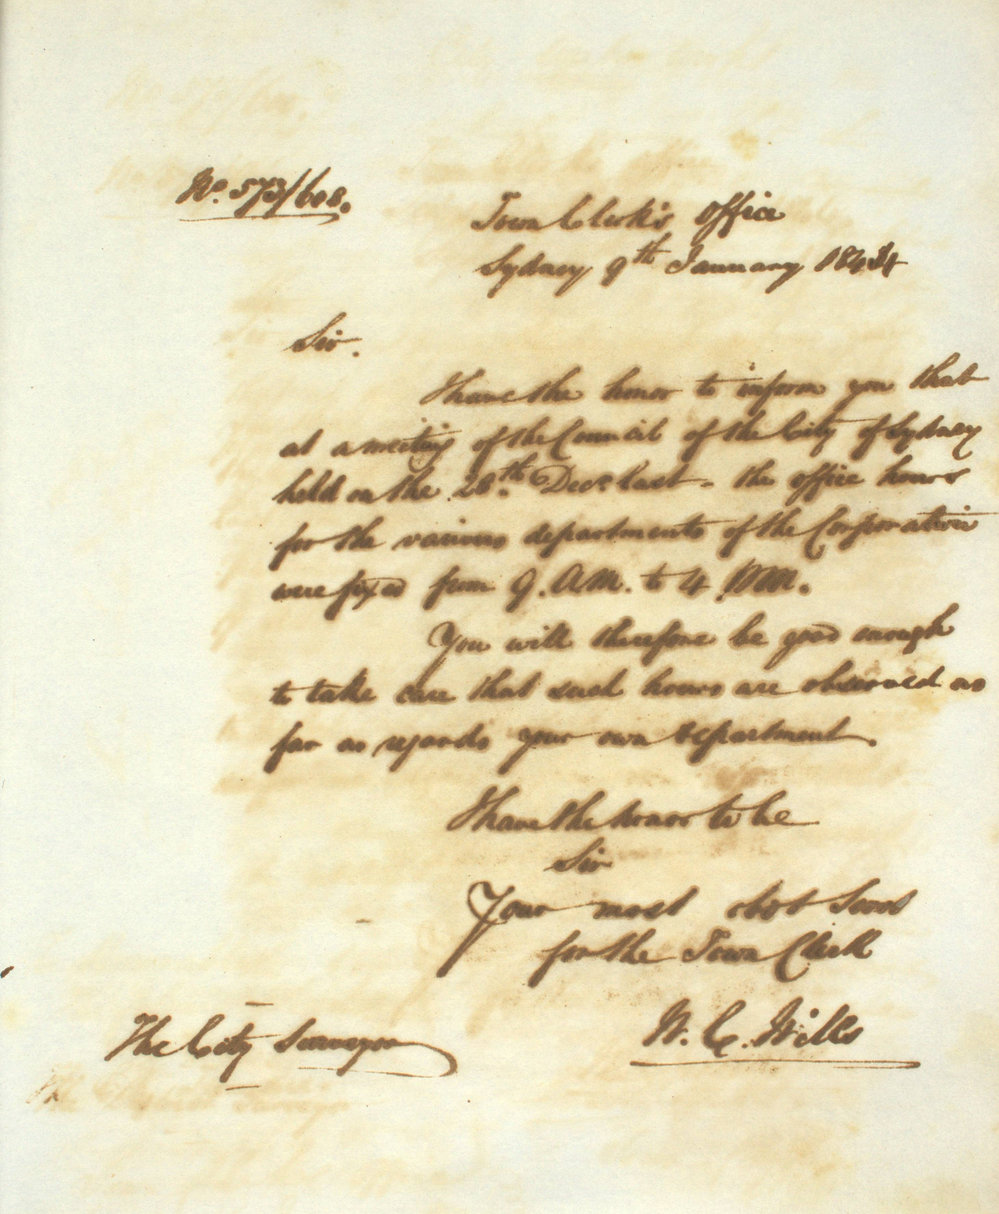 No. 573/608.
Town Clerk's Office
Sydney 9th January 1844
Sir.
I have the honor to inform you that
at a meeting of the Council of the City of Sydney
held on the 28th. Decr. last - the office hours
for the various departments of the Corporation
were fixed from 9. A.M. to 4 P.M.
You will therefore be good enough
to take care that such hours are observed as
far as regards your own department.
I have the honor to be
Sir
Your most obdt Servt
for the Town Clerk
W. C. Wills
The City Surveyor